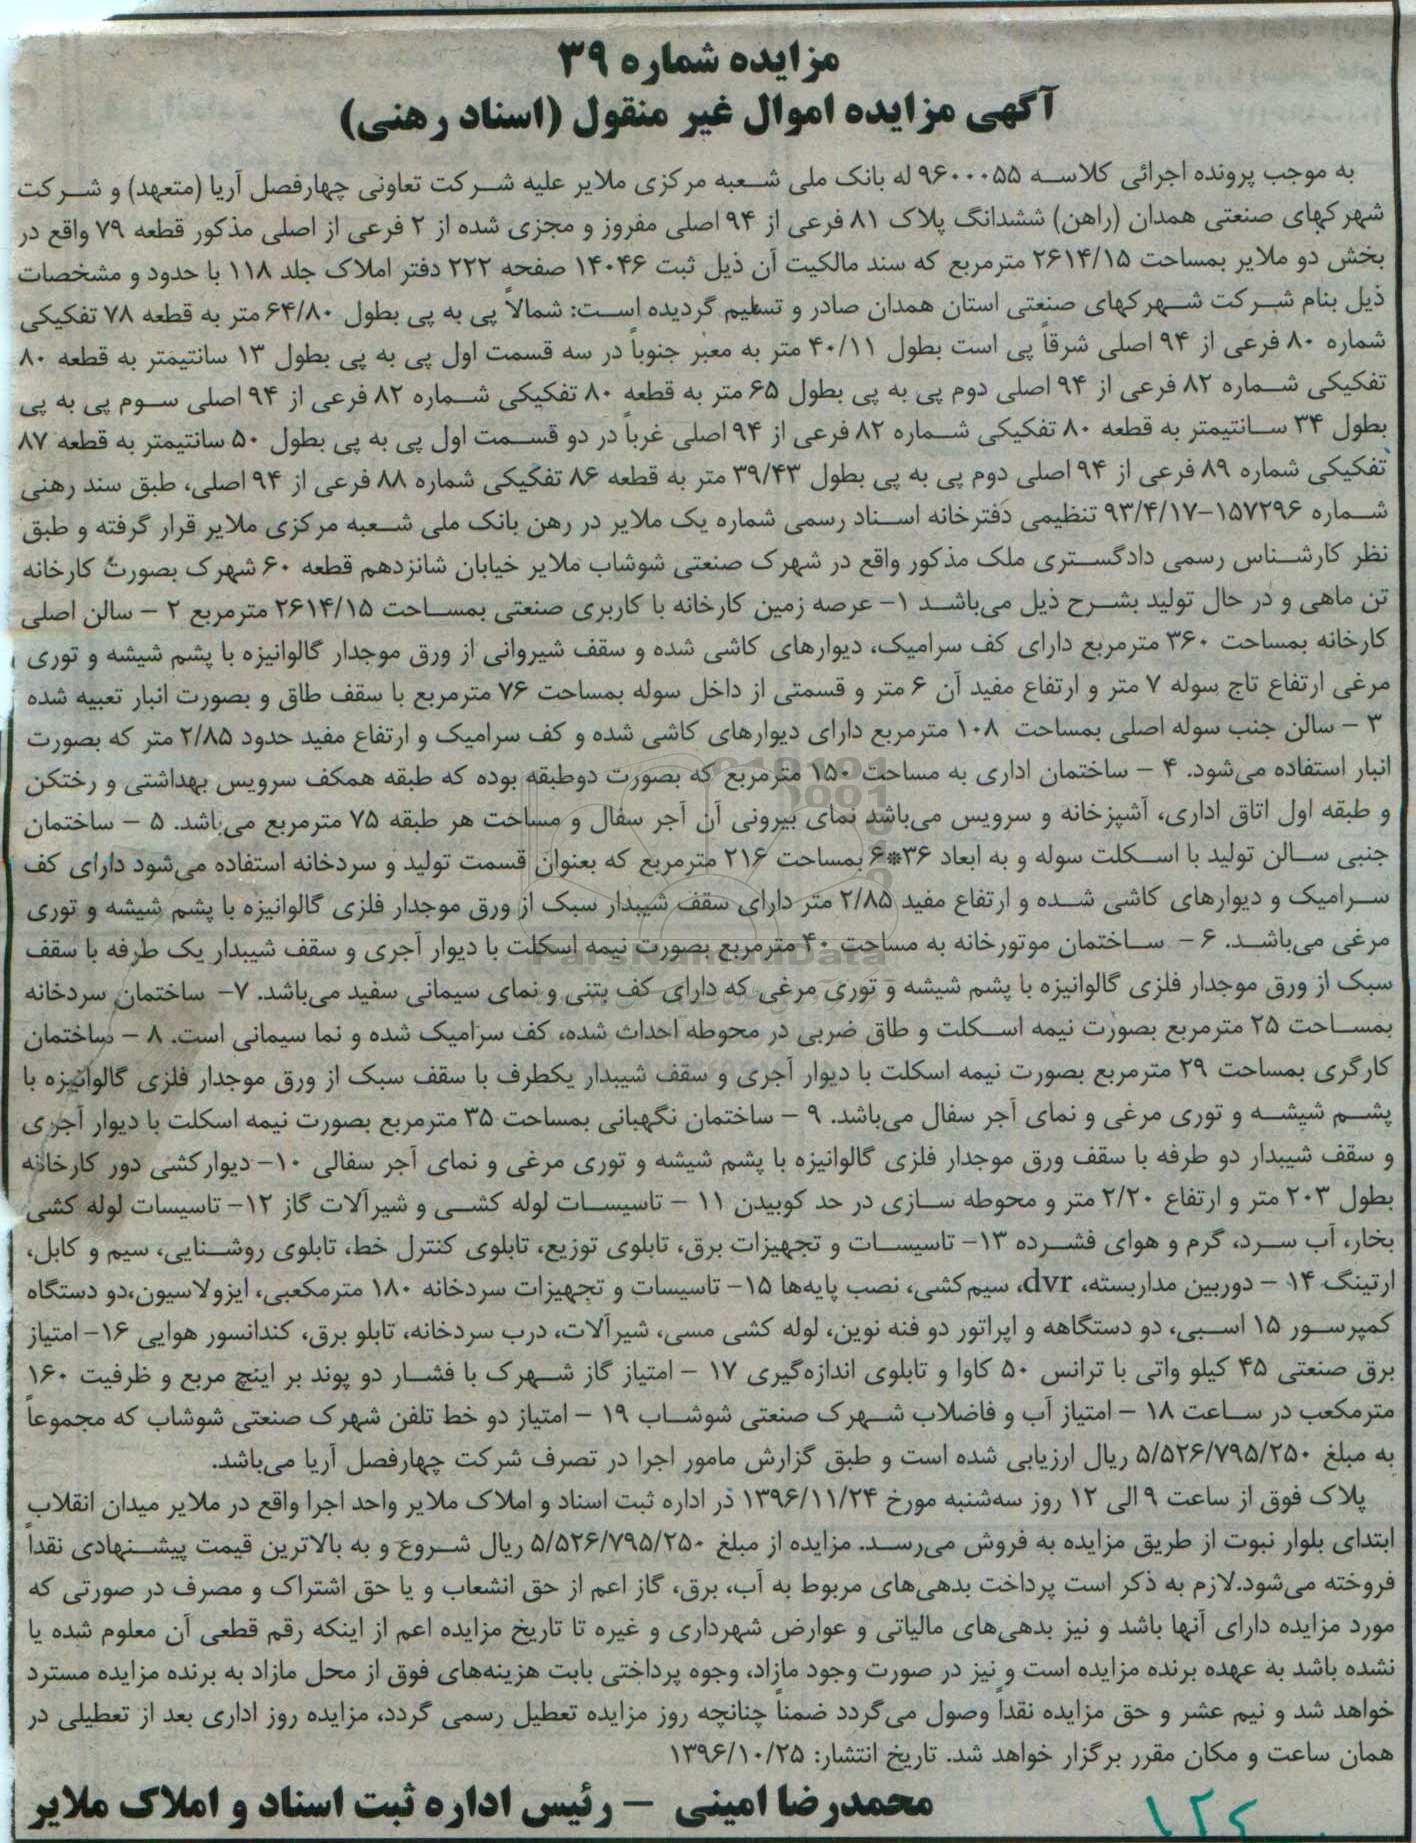 مزایده شماره ۳۹
آگهی مزایده اموال غیر منقول (اسناد رهنی)
به موجب پرونده اجرائی کلاسه ۹۶۰۰۰۵۵ له بانک ملی شعبه مرکزی ملایر علیه شرکت تعاونی چهارفصل آریا (متعهد) و شرکت
شهرکهای صنعتی همدان (راهن) ششدانگ پلاک ۸۱ فرعی از ۹۴ اصلی مفروز و مجزی شده از ۲ فرعی از اصلی مذکور قطعه ۷۹ واقع در
بخش دو ملایر بمساحت ۲۶۱۴/۱۵ مترمربع که سند مالکیت آن ذیل ثبت ۱۴۰۴۶ صفحه ۲۲۲ دفتر املاک جلد ۱۱۸ با حدود و مشخصات
ذیل بنام شرکت شهرکهای صنعتی استان همدان صادر و تسلیم گردیده است: شمالاً پی به پی بطول ۶۴/۸۰ متر به قطعه ۷۸ تفکیکی
شماره ۸۰ فرعی از ۹۴ اصلی شرقاً پی است بطول ۴۰/۱۱ متر به معبر جنوباً در سه قسمت اول پی به پی بطول ۱۳ سانتیمتر به قطعه ۸۰
تفکیکی شماره ۸۲ فرعی از ۹۴ اصلی دوم پی به پی بطول ۶۵ متر به قطعه ۸۰ تفکیکی شماره ۸۲ فرعی از ۹۴ اصلی سوم پی به پی
بطول ۳۴ سانتیمتر به قطعه ۸۰ تفکیکی شماره ۸۲ فرعی از ۹۴ اصلی غرباً در دو قسمت اول پی به پی بطول ۵۰ سانتیمتر به قطعه ۸۷
تفکیکی شماره ۸۹ فرعی از ۹۴ اصلی دوم پی به پی بطول ۳۹/۴۳ متر به قطعه ۸۶ تفکیکی شماره ۸۸ فرعی از ۹۴ اصلی، طبق سند رهنی
شماره ۱۵۷۲۹۶-۹۳/۴/۱۷ تنظیمی دفترخانه اسناد رسمی شماره یک ملایر در رهن بانک ملی شعبه مرکزی ملایر قرار گرفته و طبق
نظر کارشناس رسمی دادگستری ملک مذکور واقع در شهرک صنعتی شوشاب ملایر خیابان شانزدهم قطعه ۶۰ شهرک بصورت کارخانه
تن ماهی و در حال تولید بشرح ذیل می‌باشد ۱- عرصه زمین کارخانه با کاربری صنعتی بمساحت ۲۶۱۴/۱۵ مترمربع ۲ - سالن اصلی
کارخانه بمساحت ۳۶۰ مترمربع دارای کف سرامیک، دیوارهای کاشی شده و سقف شیروانی از ورق موجدار گالوانیزه با پشم شیشه و توری
مرغی ارتفاع تاج سوله ۷ متر و ارتفاع مفید آن ۶ متر و قسمتی از داخل سوله بمساحت ۷۶ مترمربع با سقف طاق و بصورت انبار تعبیه شده
۳ - سالن جنب سوله اصلی بمساحت ۱۰۸ مترمربع دارای دیوارهای کاشی شده و کف سرامیک و ارتفاع مفید حدود ۲/۸۵ متر که بصورت
انبار استفاده می‌شود. ۴ - ساختمان اداری به مساحت ۱۵۰ مترمربع که بصورت دوطبقه بوده که طبقه همکف سرویس بهداشتی و رختکن
و طبقه اول اتاق اداری، آشپزخانه و سرویس می‌باشد نمای بیرونی آن آجر سفال و مساحت هر طبقه ۷۵ مترمربع می‌باشد. ۵ - ساختمان
جنبی سالن تولید با اسکلت سوله و به ابعاد ۳۶*۶ بمساحت ۲۱۶ مترمربع که بعنوان قسمت تولید و سردخانه استفاده می‌شود دارای کف
سرامیک و دیوارهای کاشی شده و ارتفاع مفید ۲/۸۵ متر دارای سقف شیبدار سبک از ورق موجدار فلزی گالوانیزه با پشم شیشه و توری
مرغی می‌باشد. ۶ - ساختمان موتورخانه به مساحت ۴۰ مترمربع بصورت نیمه اسکلت با دیوار آجری و سقف شیبدار یک طرفه با سقف
سبک از ورق موجدار فلزی گالوانیزه با پشم شیشه و توری مرغی که دارای کف بتنی و نمای سیمانی سفید می‌باشد. ۷- ساختمان سردخانه
بمساحت ۲۵ مترمربع بصورت نیمه اسکلت و طاق ضربی در محوطه احداث شده، کف سرامیک شده و نما سیمانی است. ۸ - ساختمان
کارگری بمساحت ۲۹ مترمربع بصورت نیمه اسکلت با دیوار آجری و سقف شیبدار یکطرف با سقف سبک از ورق موجدار فلزی گالوانیزه با
پشم شیشه و توری مرغی و نمای آجر سفال می‌باشد. ۹ - ساختمان نگهبانی بمساحت ۳۵ مترمربع بصورت نیمه اسکلت با دیوار آجری
و سقف شیبدار دو طرفه با سقف ورق موجدار فلزی گالوانیزه با پشم شیشه و توری مرغی و نمای آجر سفالی ۱۰- دیوارکشی دور کارخانه
بطول ۲۰۳ متر و ارتفاع ۲/۲۰ متر و محوطه سازی در حد کوبیدن ۱۱ - تاسیسات لوله کشی و شیرآلات گاز ۱۲- تاسیسات لوله کشی
بخار، آب سرد، گرم و هوای فشرده ۱۳- تاسیسات و تجهیزات برق، تابلوی توزیع، تابلوی کنترل خط، تابلوی روشنایی، سیم و کابل،
ارتینگ ۱۴ - دوربین مداربسته، dvr، سیم کشی، نصب پایه‌ها ۱۵- تاسیسات و تجهیزات سردخانه ۱۸۰ مترمکعبی، ایزولاسیون،دو دستگاه
کمپرسور ۱۵ اسبی، دو دستگاهه و اپراتور دو فنه نوین، لوله کشی مسی، شیرآلات، درب سردخانه، تابلو برق، کندانسور هوایی ۱۶- امتیاز
برق صنعتی ۴۵ کیلو واتی با ترانس ۵۰ کاوا و تابلوی اندازه‌گیری ۱۷ - امتیاز گاز شهرک با فشار دو پوند بر اینچ مربع و ظرفیت ۱۶۰
مترمکعب در ساعت ۱۸ - امتیاز آب و فاضلاب شهرک صنعتی شوشاب ۱۹ - امتیاز دو خط تلفن شهرک صنعتی شوشاب که مجموعاً
به مبلغ ۵/۵۲۶/۷۹۵/۲۵۰ ریال ارزیابی شده است و طبق گزارش مامور اجرا در تصرف شرکت چهارفصل آریا می‌باشد.
پلاک فوق از ساعت ۹ الی ۱۲ روز سه‌شنبه مورخ ۱۳۹۶/۱۱/۲۴ در اداره ثبت اسناد و املاک ملایر واحد اجرا واقع در ملایر میدان انقلاب
ابتدای بلوار نبوت از طریق مزایده به فروش می‌رسد. مزایده از مبلغ ۵/۵۲۶/۷۹۵/۲۵۰ ریال شروع و به بالاترین قیمت پیشنهادی نقداً
فروخته می‌شود.لازم به ذکر است پرداخت بدهی‌های مربوط به آب، برق، گاز اعم از حق انشعاب و یا حق اشتراک و مصرف در صورتی که
مورد مزایده دارای آنها باشد و نیز بدهی‌های مالیاتی و عوارض شهرداری و غیره تا تاریخ مزایده اعم از اینکه رقم قطعی آن معلوم شده یا
نشده باشد به عهده برنده مزایده است و نیز در صورت وجود مازاد، وجوه پرداختی بابت هزینه‌های فوق از محل مازاد به برنده مزایده مسترد
خواهد شد و نیم عشر و حق مزایده نقداً وصول می‌گردد ضمناً چنانچه روز مزایده تعطیل رسمی گردد، مزایده روز اداری بعد از تعطیلی در
همان ساعت و مکان مقرر برگزار خواهد شد. تاریخ انتشار: ۱۳۹۶/۱۰/۲۵
محمدرضا امینی - رئیس اداره ثبت اسناد و املاک ملایر